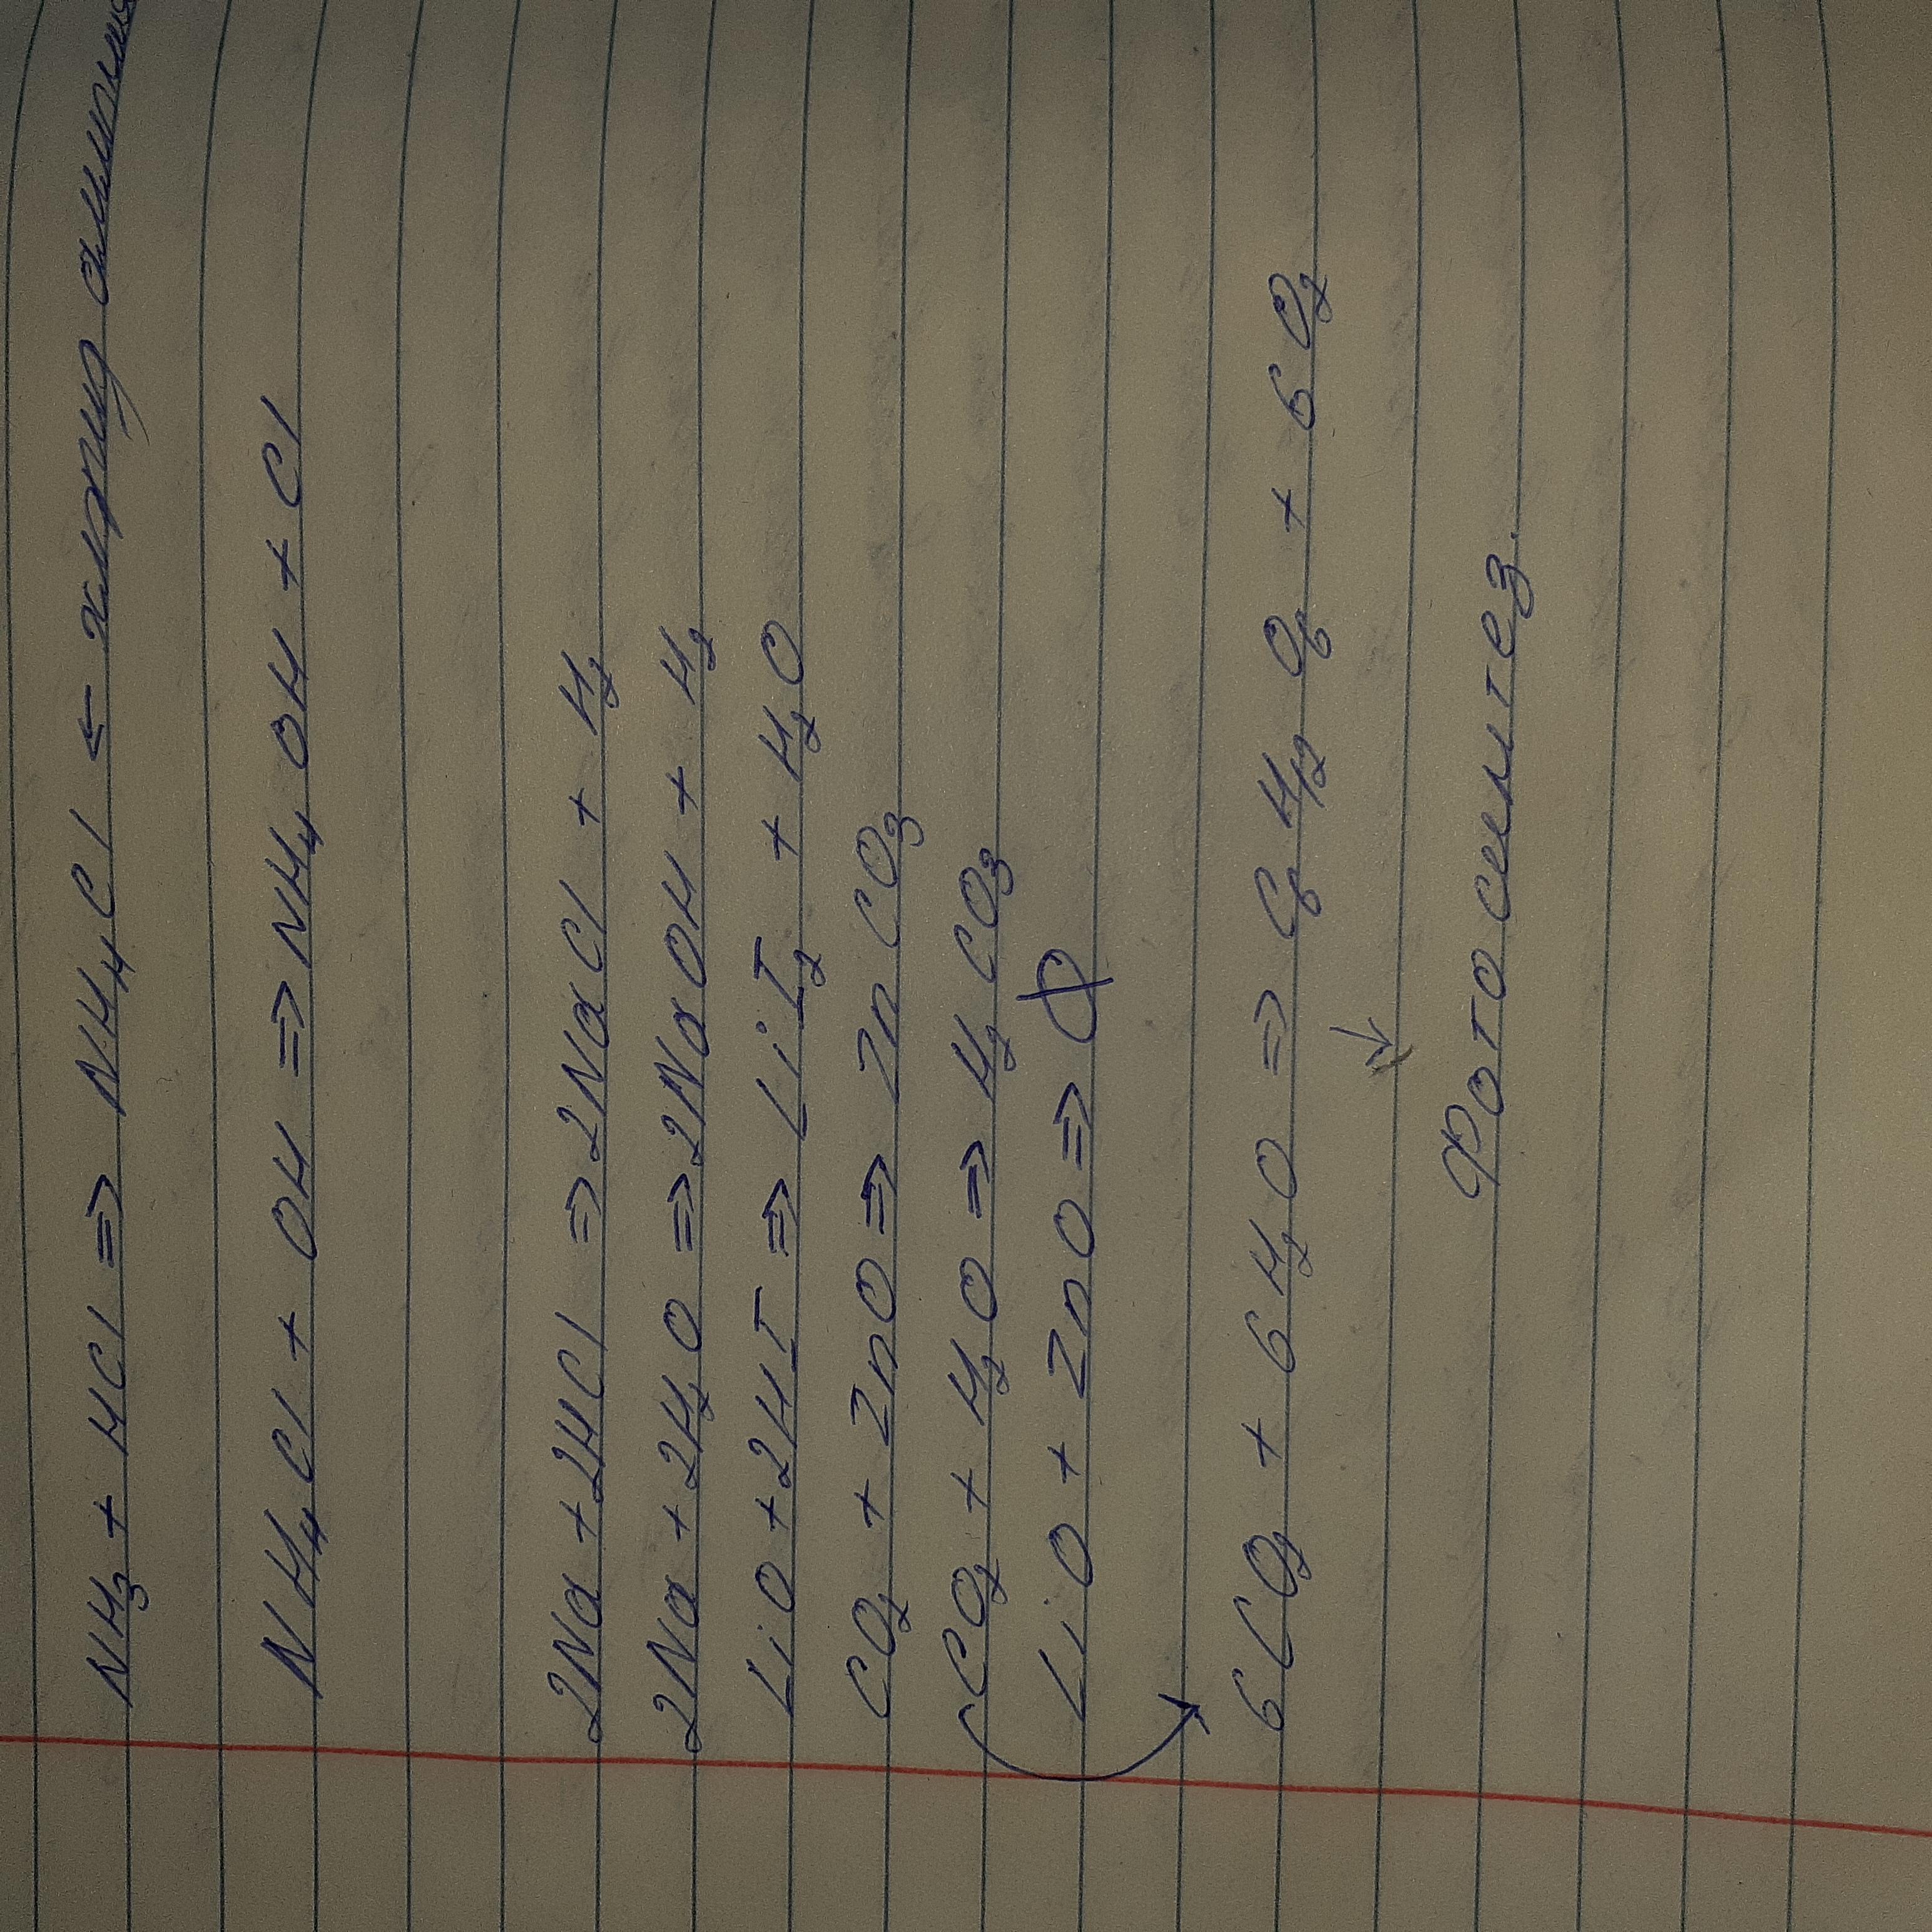 NH₃ + HCl => NH₄Cl ← хлорид
NH₄Cl + OH => NH₄OH + Cl
2Na + 2HCl => 2NaCl + H₂
2Na + 2H₂O => 2NaOH + H₂
LiO + 2HI => LiI₂ + H₂O
CO₂ + ZnO => ZnCO₃
CO₂ + H₂O => H₂CO₃
LiO + ZnO => ∅
6CO₂ + 6H₂O => C₆H₁₂O₆ + 6O₂
↓
Фотосинтез.